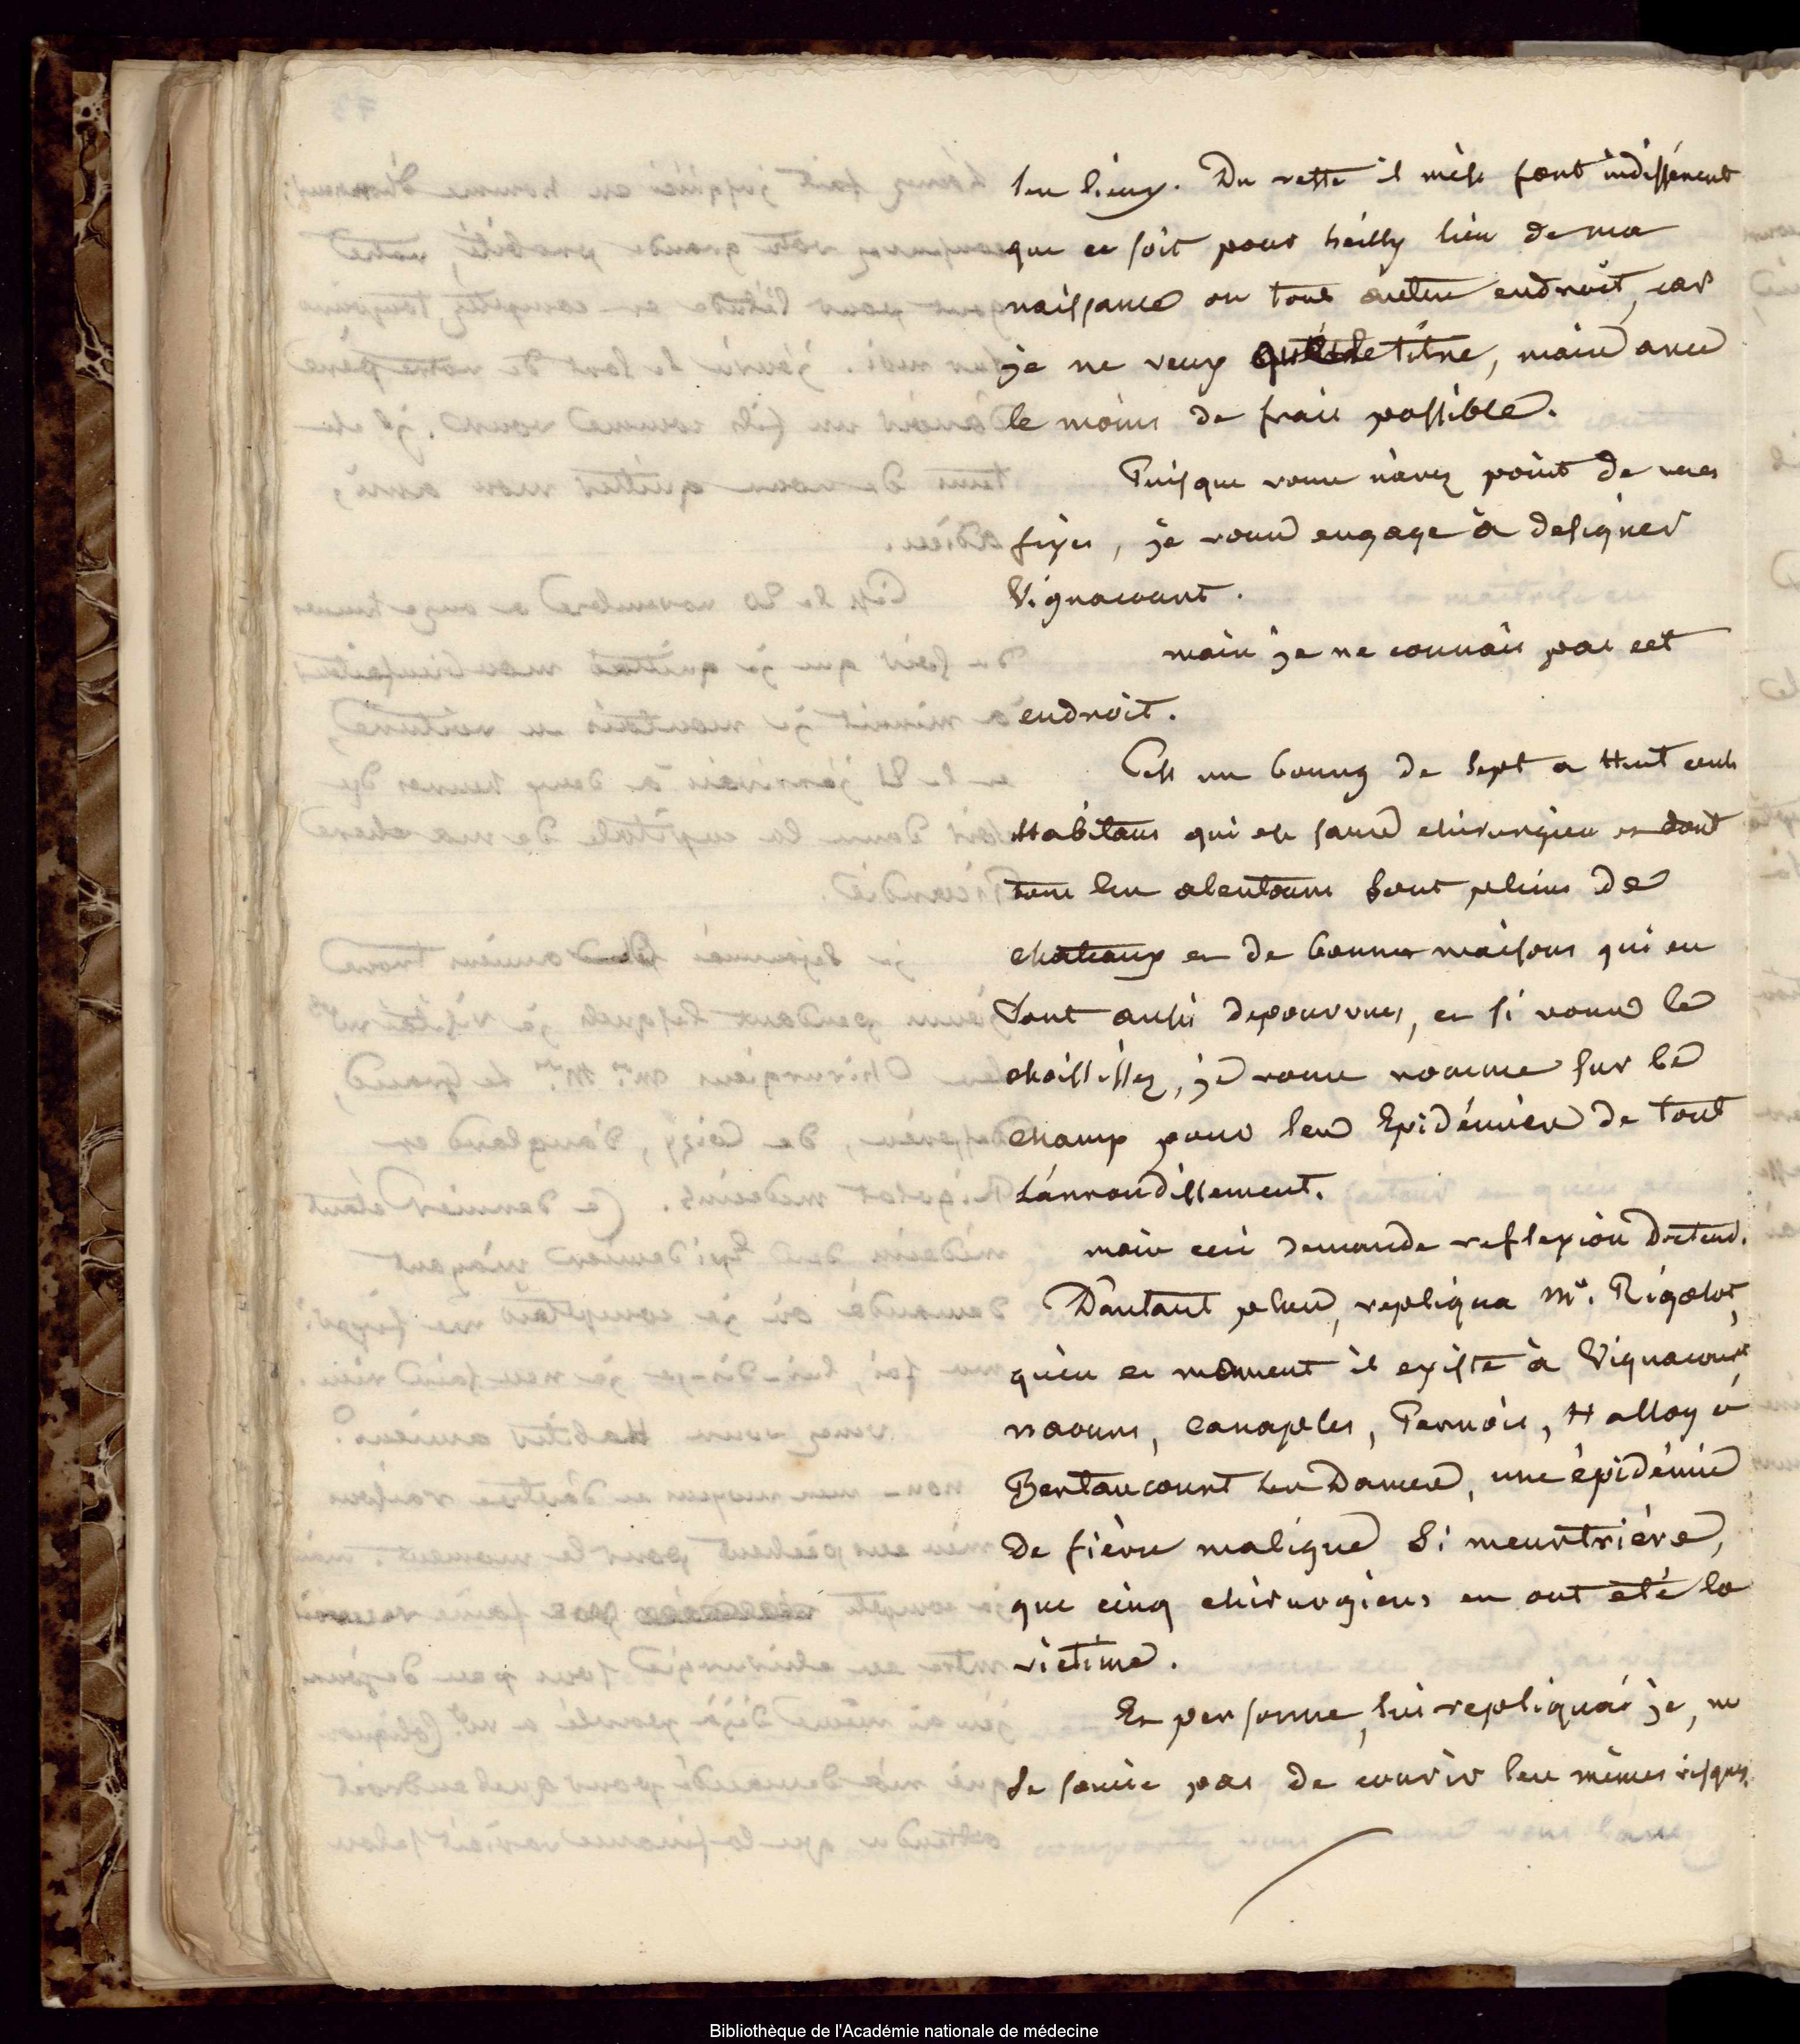 les lieux. Du reste il m'est fort indifférent
que ce soit pour heilly lieu de ma
naissance ou tout autre endroit, car
je ne veux que le titre, mais avec
le moins de frais possible.
Puisque vous n'avez point de vues
fixes, je vous engage à designer
Vignacourt.
mais je ne connais pas cet
endroit.
C'est un bourg de sept a Huit cents
Habitans qui est sans chirurgien et dont
tous les alentours sont pleins de
chateaux et de bonnes maisons qui en
sont aussi depourvues, et si vous le
choisissez, je vous nomme sur le
champ pour les Epidémies de tout
L'arrondissement.
mais ceci demande reflexion Docteur.
D'autant plus, repliqua Mr. Rigolot,
qu'en ce moment il existe à Vignacourt,
naours, Canaples, Pernois, Halloy et
Bertaucourt Les Dames, une épidémie
de fièvre maligne si meurtrière,
que cinq chirurgiens en ont été la
victime.
Et personne, lui repliquai je, ne
se soucie pas de courir les mêmes risques.
Bibliothèque de l'Académie nationale de médecine